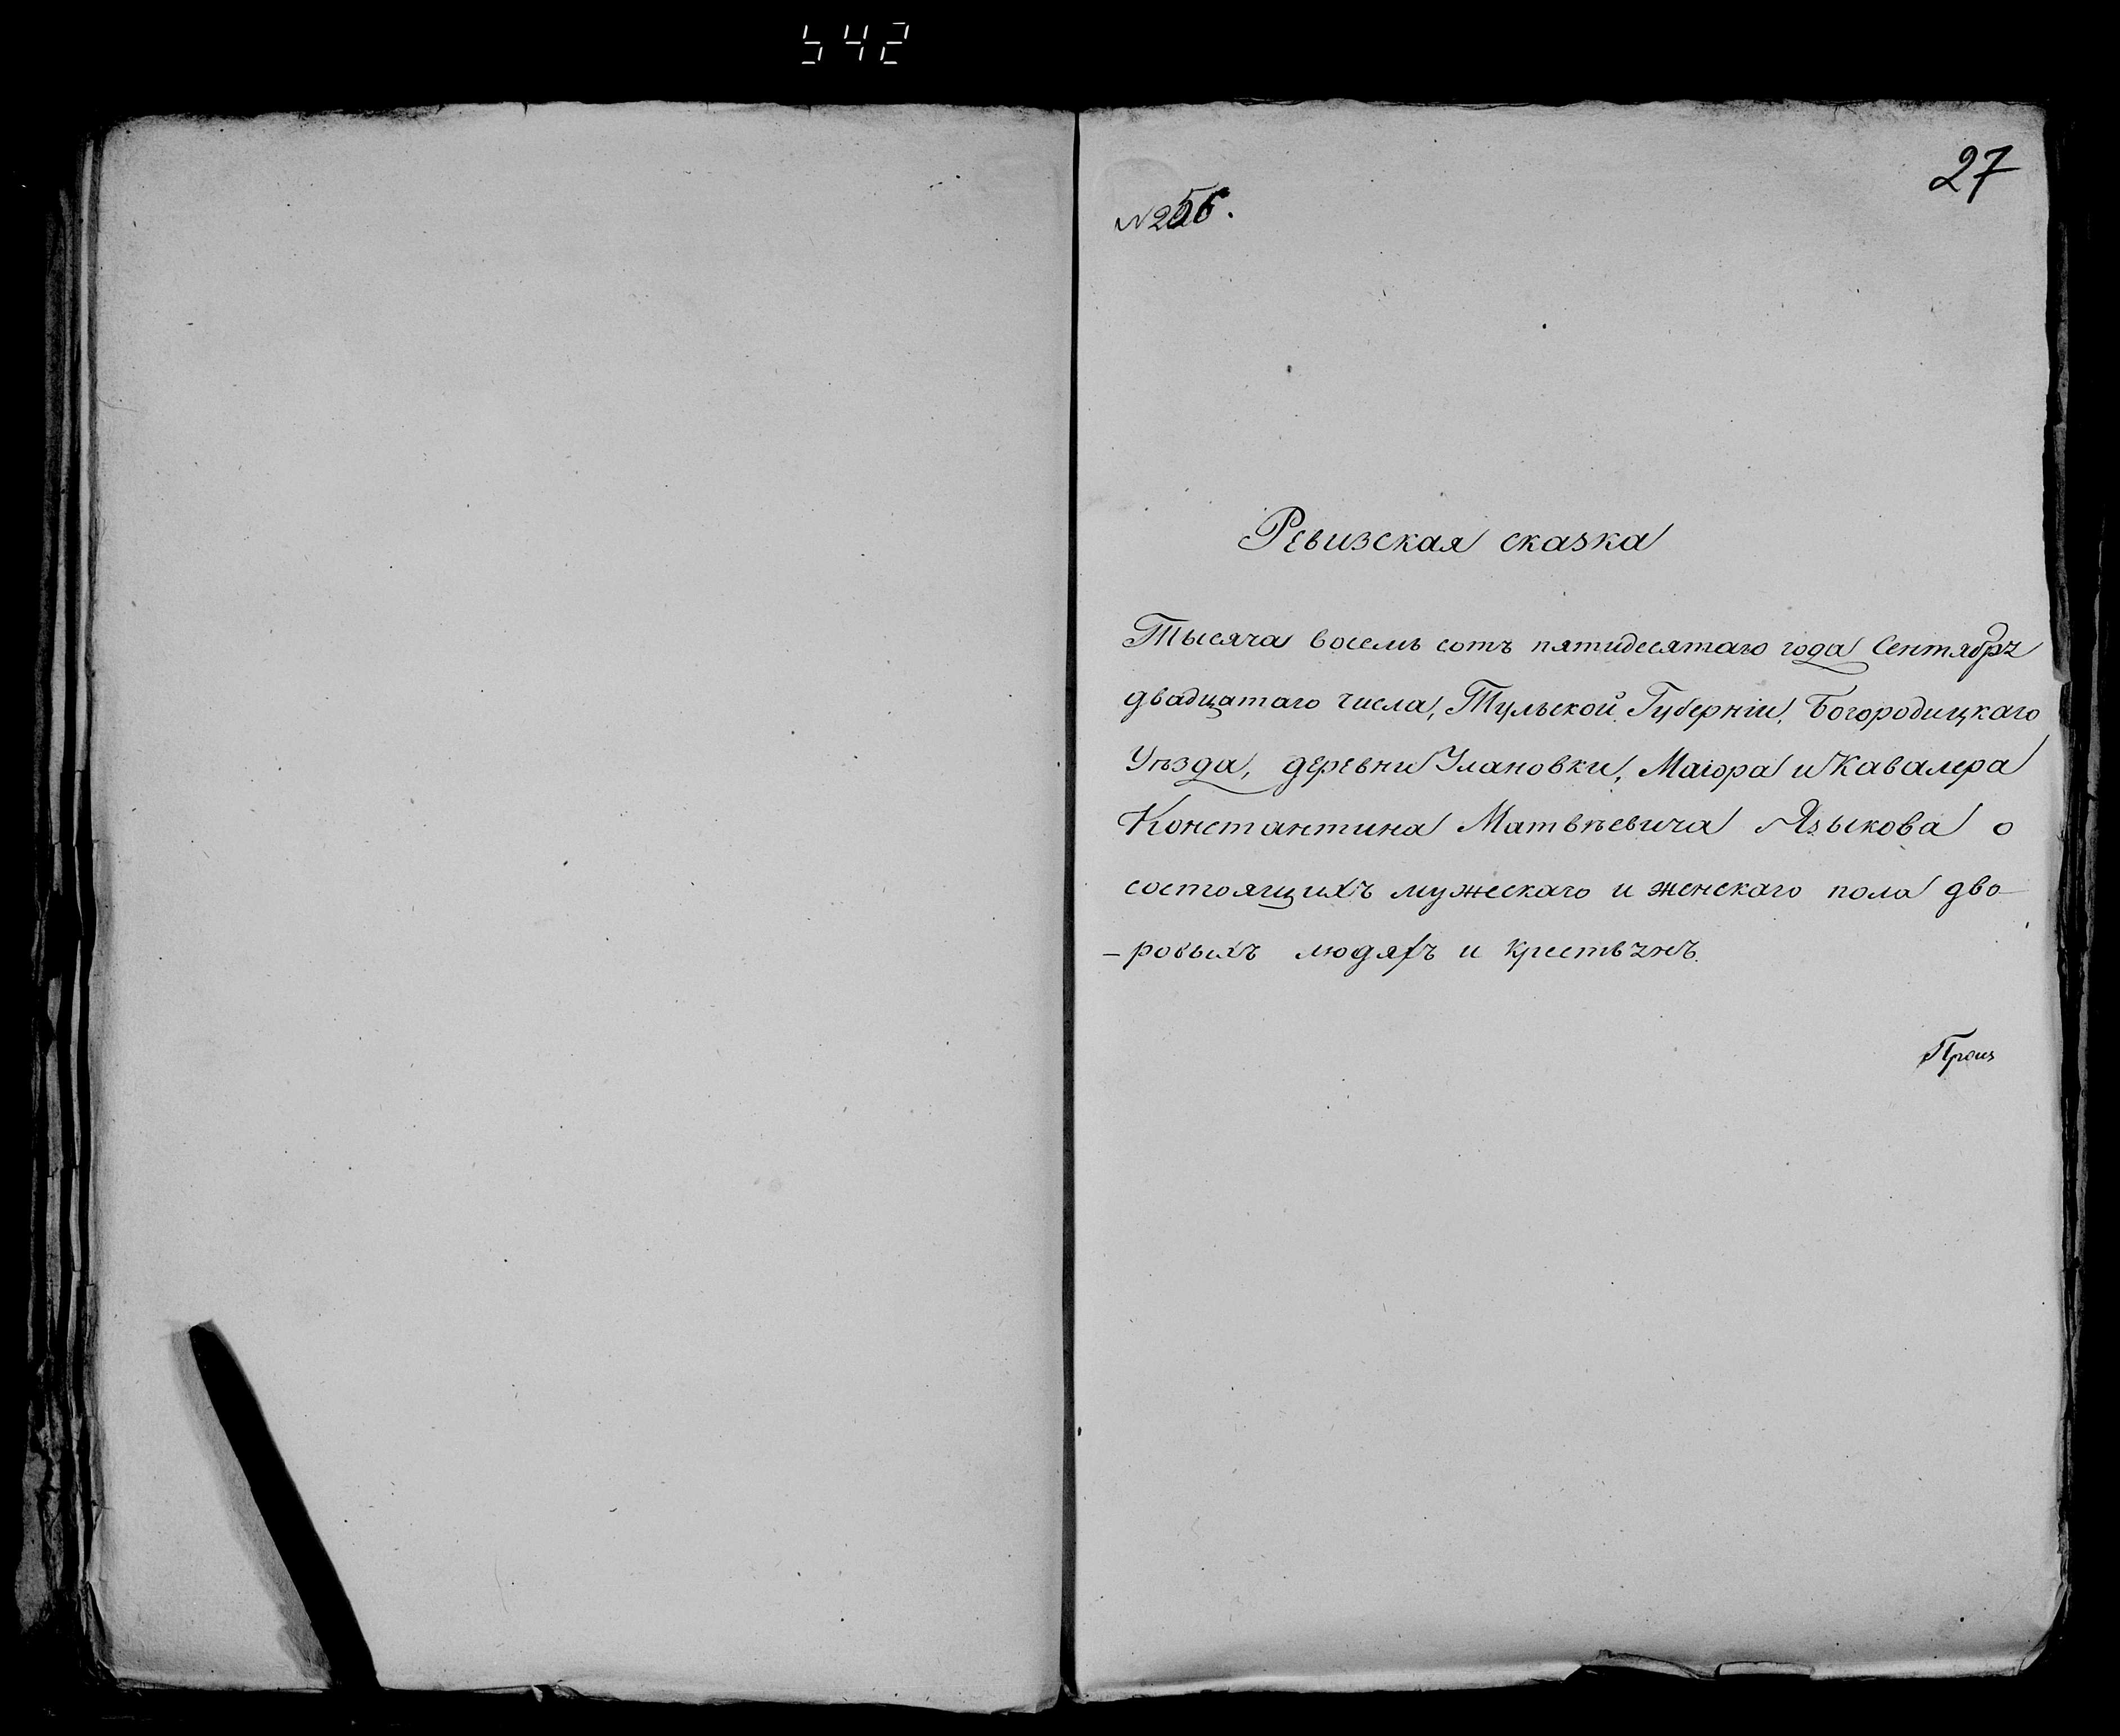 542
27
№256.
Ревизская сказка
Тысяча восемь сотъ пятидесятаго года Сентября
двадцатаго числа, Тульской Губерніи, Богородицкаго
Уѣзда, деревни Улановки, Маіора и Кавалера
Константина Матвѣевича Языкова о
состоящихъ мужескаго и женскаго пола дво-
-ровыхъ людяхъ и крестьянъ.